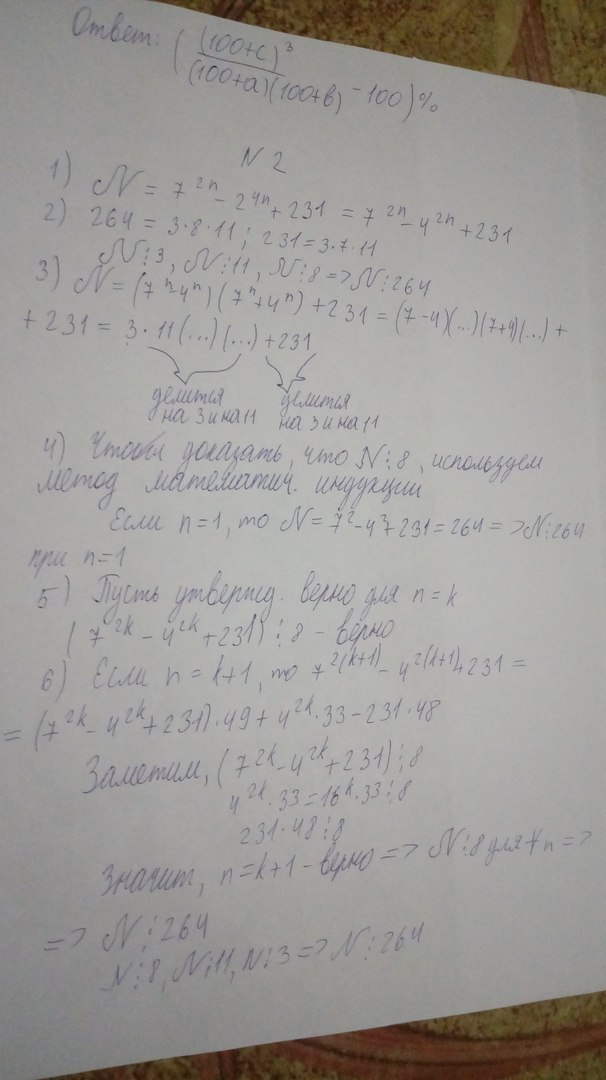 Ответ: ( (100+c)³ / (100+a)(100+b) - 100)%
N 2
1) N = 7^2n - 2^4n + 231 = 7^2n - 4^2n + 231
2) 264 = 3·8·11; 231 = 3·7·11
N⋮3, N⋮11, N⋮8 => N⋮264
3) N = (7^n - 4^n)(7^n + 4^n) + 231 = (7-4)(...)(7+4)(...) +
+ 231 = 3·11(...)(...) + 231
делится делится
на 3 и на 11 на 3 и на 11
4) Чтобы доказать, что N⋮8, используем
метод математич. индукции
Если n=1, то N = 7² - 4² + 231 = 264 => N⋮264
при n=1
5) Пусть утвержд. верно для n = k
(7^2k - 4^2k + 231)⋮8 - верно
6) Если n = k+1, то 7^2(k+1) - 4^2(k+1) + 231 =
= (7^2k - 4^2k + 231)·49 + 4^2k·33 - 231·48
Заметим, (7^2k - 4^2k + 231)⋮8
4^2k·33 = 16^k·33⋮8
231·48⋮8
Значит, n = k+1 - верно => N⋮8 для ∀n =>
=> N⋮264
N⋮8, N⋮11, N⋮3 => N⋮264